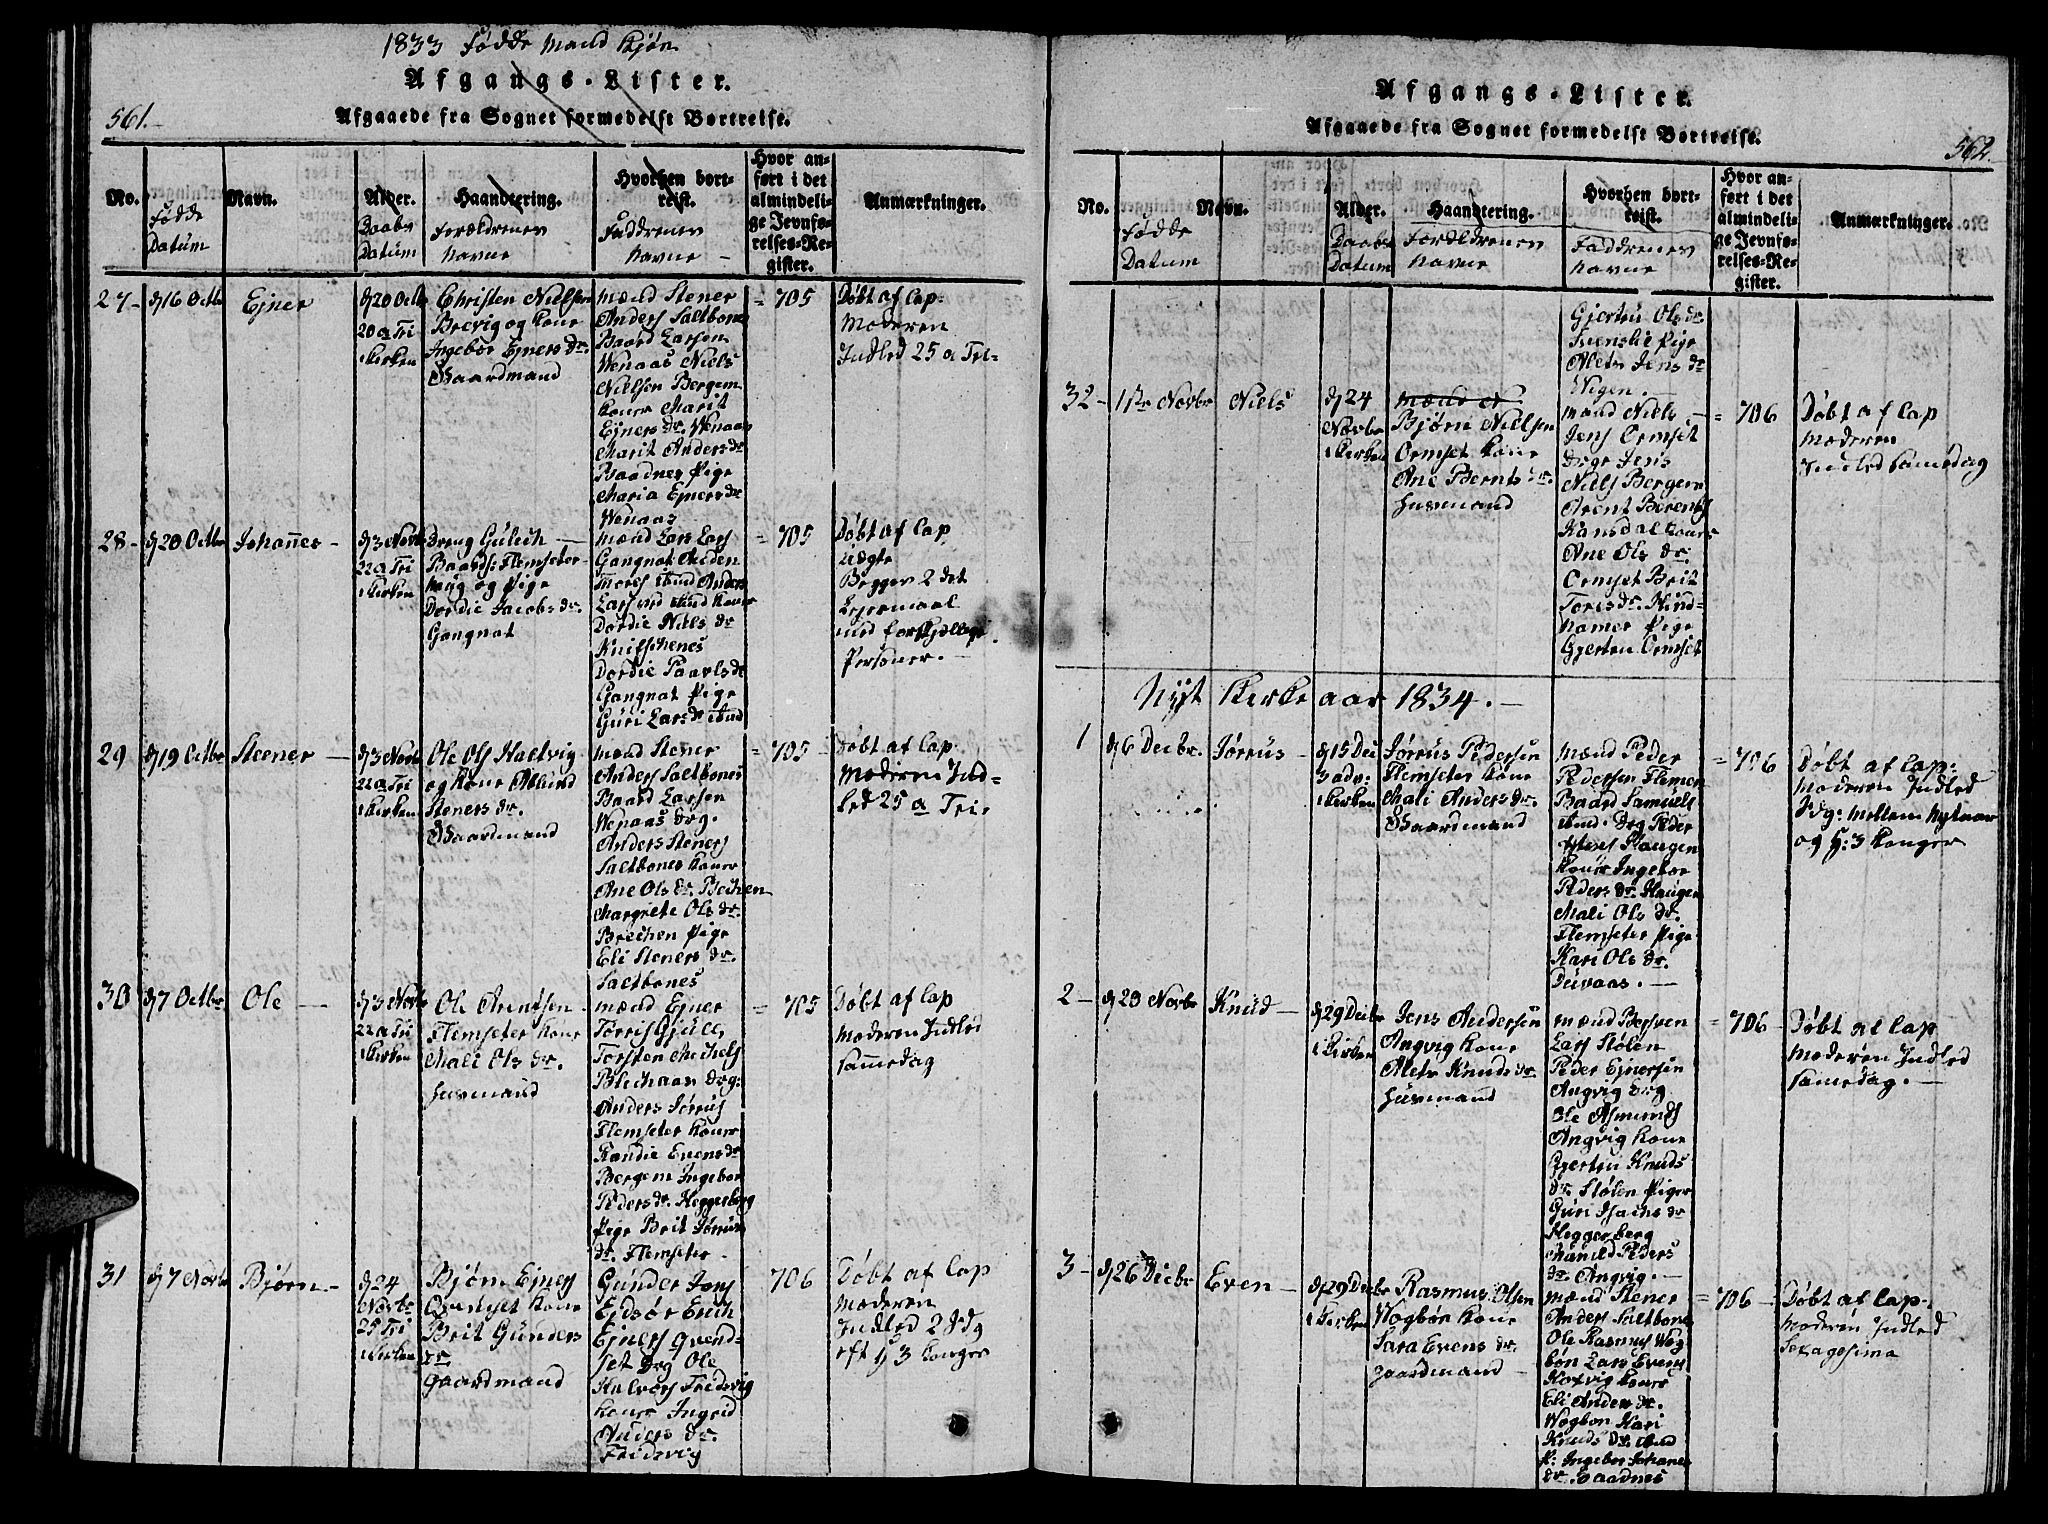 1833 Fødde Mand Kjøn
Afgangs-Lister.
561.
Afgaaede fra Sognet formedelst Bortreise.
No.
Fødde
Datum
Navn.
Alder.
Daabs
Datum
Haandtering.
Forældrenes
Navne
Hvorhen bort-
reist.
Faddrenes
Navne
Hvor an-
ført i det
almindeli-
ge Jevnfø-
relses-Re-
gister.
Anmærkninger.
27 d 16 Octb Ejner
d 20 Octb
20 a Tri
i Kirken
Christen Nielsen
Brevig og Kone
Ingebor Ejners dr.
Gaardmand
Mænd Stener
Anders Saltbones
Baard Larsen
Wenaas Niels
Nielsen Bergem
Koner Marit
Ejners dr. Wenaas
Marit Anders dr
Baadnes Pige
Maria Ejners dr
Wenaas
= 705
Døbt af Cap:
Moderen
Indled 25 a Tri-
28 - d 20 Octbr Johannes -
d 3 Novb
22 a Tri
i Kirken
Dreng Gulich
Baards: Flemseter-
houg og Pige
Dordie Jacobs dr.
Gangnat
Mænd Lars Lars
Gangnat
Anders
Dordie Niels dr
Dordie Paarls dr
Gangnat Pige
Guri Lars dr
= 705
Døbt af Cap
Uægte
Begges 2det
Lejermaal
med forskjellige
Personer.
29 d 19 Octbr Steener
d 3 Novb
22 a Tri
i Kirken
Ole Ols Haltvig
og Kone
Steners dr.
Gaardmand
Mænd Stener
Anders Saltbones
Baard Larsen
Wenaas dreg.
Anders Steners
Saltbones Koner
Ane Ols dr.
Margrete Ols dr.
Pige
Eli Steners dr.
Saltbones
= 705
Døbt af Cap.
Moderen Ind-
led 25 a Tri.
30 d 7 Octbr. Ole
d 3 Novb
22 a Tri
i Kirken
Ole Arentsen
Flemseter Kone
Mali Ols dr.
Husmand
Mænd Ejner
Torris Gjul
Torsten Michels
dreg:
Anders Jørrus
Flemseter Koner
Randie Evens dr
Bergem Ingebor
Peders dr. Heggerberg
Pige Brit Jørrus
dr. Flemseter
= 705
Døbt af Cap
Moderen Indled
Sammedag
31 d 7 Novb Bjørn -
d 24
Novbr
25 Tri
i Kirken
Bjørn Ejners
Kone
Brit Gunders
dr
Gaardmand
Gunder Jons
Ejdsør Erich
Ejners Grend-
set Dreg Ole
Halvors Fredsvig
Koner Ingrid
Anders dr.
Fredsvig
706
Døbt af Cap
Moderen
Indled 2 Sdg
eft H 3 Konger
Afgangs-Lister.
Afgaaede fra Sognet formedelst Bortreise.
562.
No.
Fødde
Datum
Navn.
Alder.
Daabs
Datum
Haandtering.
Forældrenes
Navne
Hvorhen bort-
reist.
Faddrenes
Navne
Hvor an-
ført i det
almindeli-
ge Jevnfø-
relses-Re-
gister.
Anmærkninger.
Gjerten Ols dr
Svenslie Pige
Alet Jens dr
Wigen.
32 - 1ste Novbr Niels
d 24
Novbr
i Kirken
Bjørn Nielsen
Ormset Kone
Ane Bernts dr.
Husmand
Mænd Niels
Jens Ormset
drege Jens
Niels Bergem
Arent Berents
Koner
Ane Ols dr.
Ormset Brit
Tores dr.
Pige
Gjerten Ormset
= 706
Døbt af Cap
Moderen
Indled Samedag
Nyt Kirke aar 1834.
1 d 6 Decbr. Jørrus -
d 15 Dec
3 adv:
i Kirken
Jørrus Pedersen
Flemseter Kone
Mali Anders dr.
Gaardmand
Mænd Peder
Pedersen Flemse
Baard Samuels
Dreg Peder
Haugen
Kone Ingebor
Peders dr. Haugen
Mali Ols dr.
Flemseter Pige
Kari Ols dr.
= 706
Døbt af Cap:
Moderen Indled
Sdg: mellem Nytaar
og H: 3 Konger
2 - d 29 Novbr Knud -
d 29 Decbr
i Kirken
Jens Andersen
Angvig Kone
Alet Knuds dr.
Husmand
Mænd
Lars Stølen
Peder Ejnersen
Angvig dreg
Ole Asmunds
Angvig Kone
Gjerten Knuds
dr. Stølen Piger
Guri Isachs dr
Heggerberg
Magnild Peders
dr. Angvig.
= 706 -
Døbt af Cap
Moderen Indled
Samedag.
3 - d 26 Decbr Even
d 29 Decbr
i Kirken
Rasmus Olsen
Wogbøn Kone
Sara Evens dr.
Gaardmand
Mænd Stener
Anders Saltbone
Ole Rasmus Wog
bøn Lars Evens
Koner
Eli Anders dr.
Wogbøn Kari
Knuds dr.
P: Ingebor Johanes
dr. Baadnes
= 706 -
Døbt af Cap.
Moderen Indled
Sexagesima